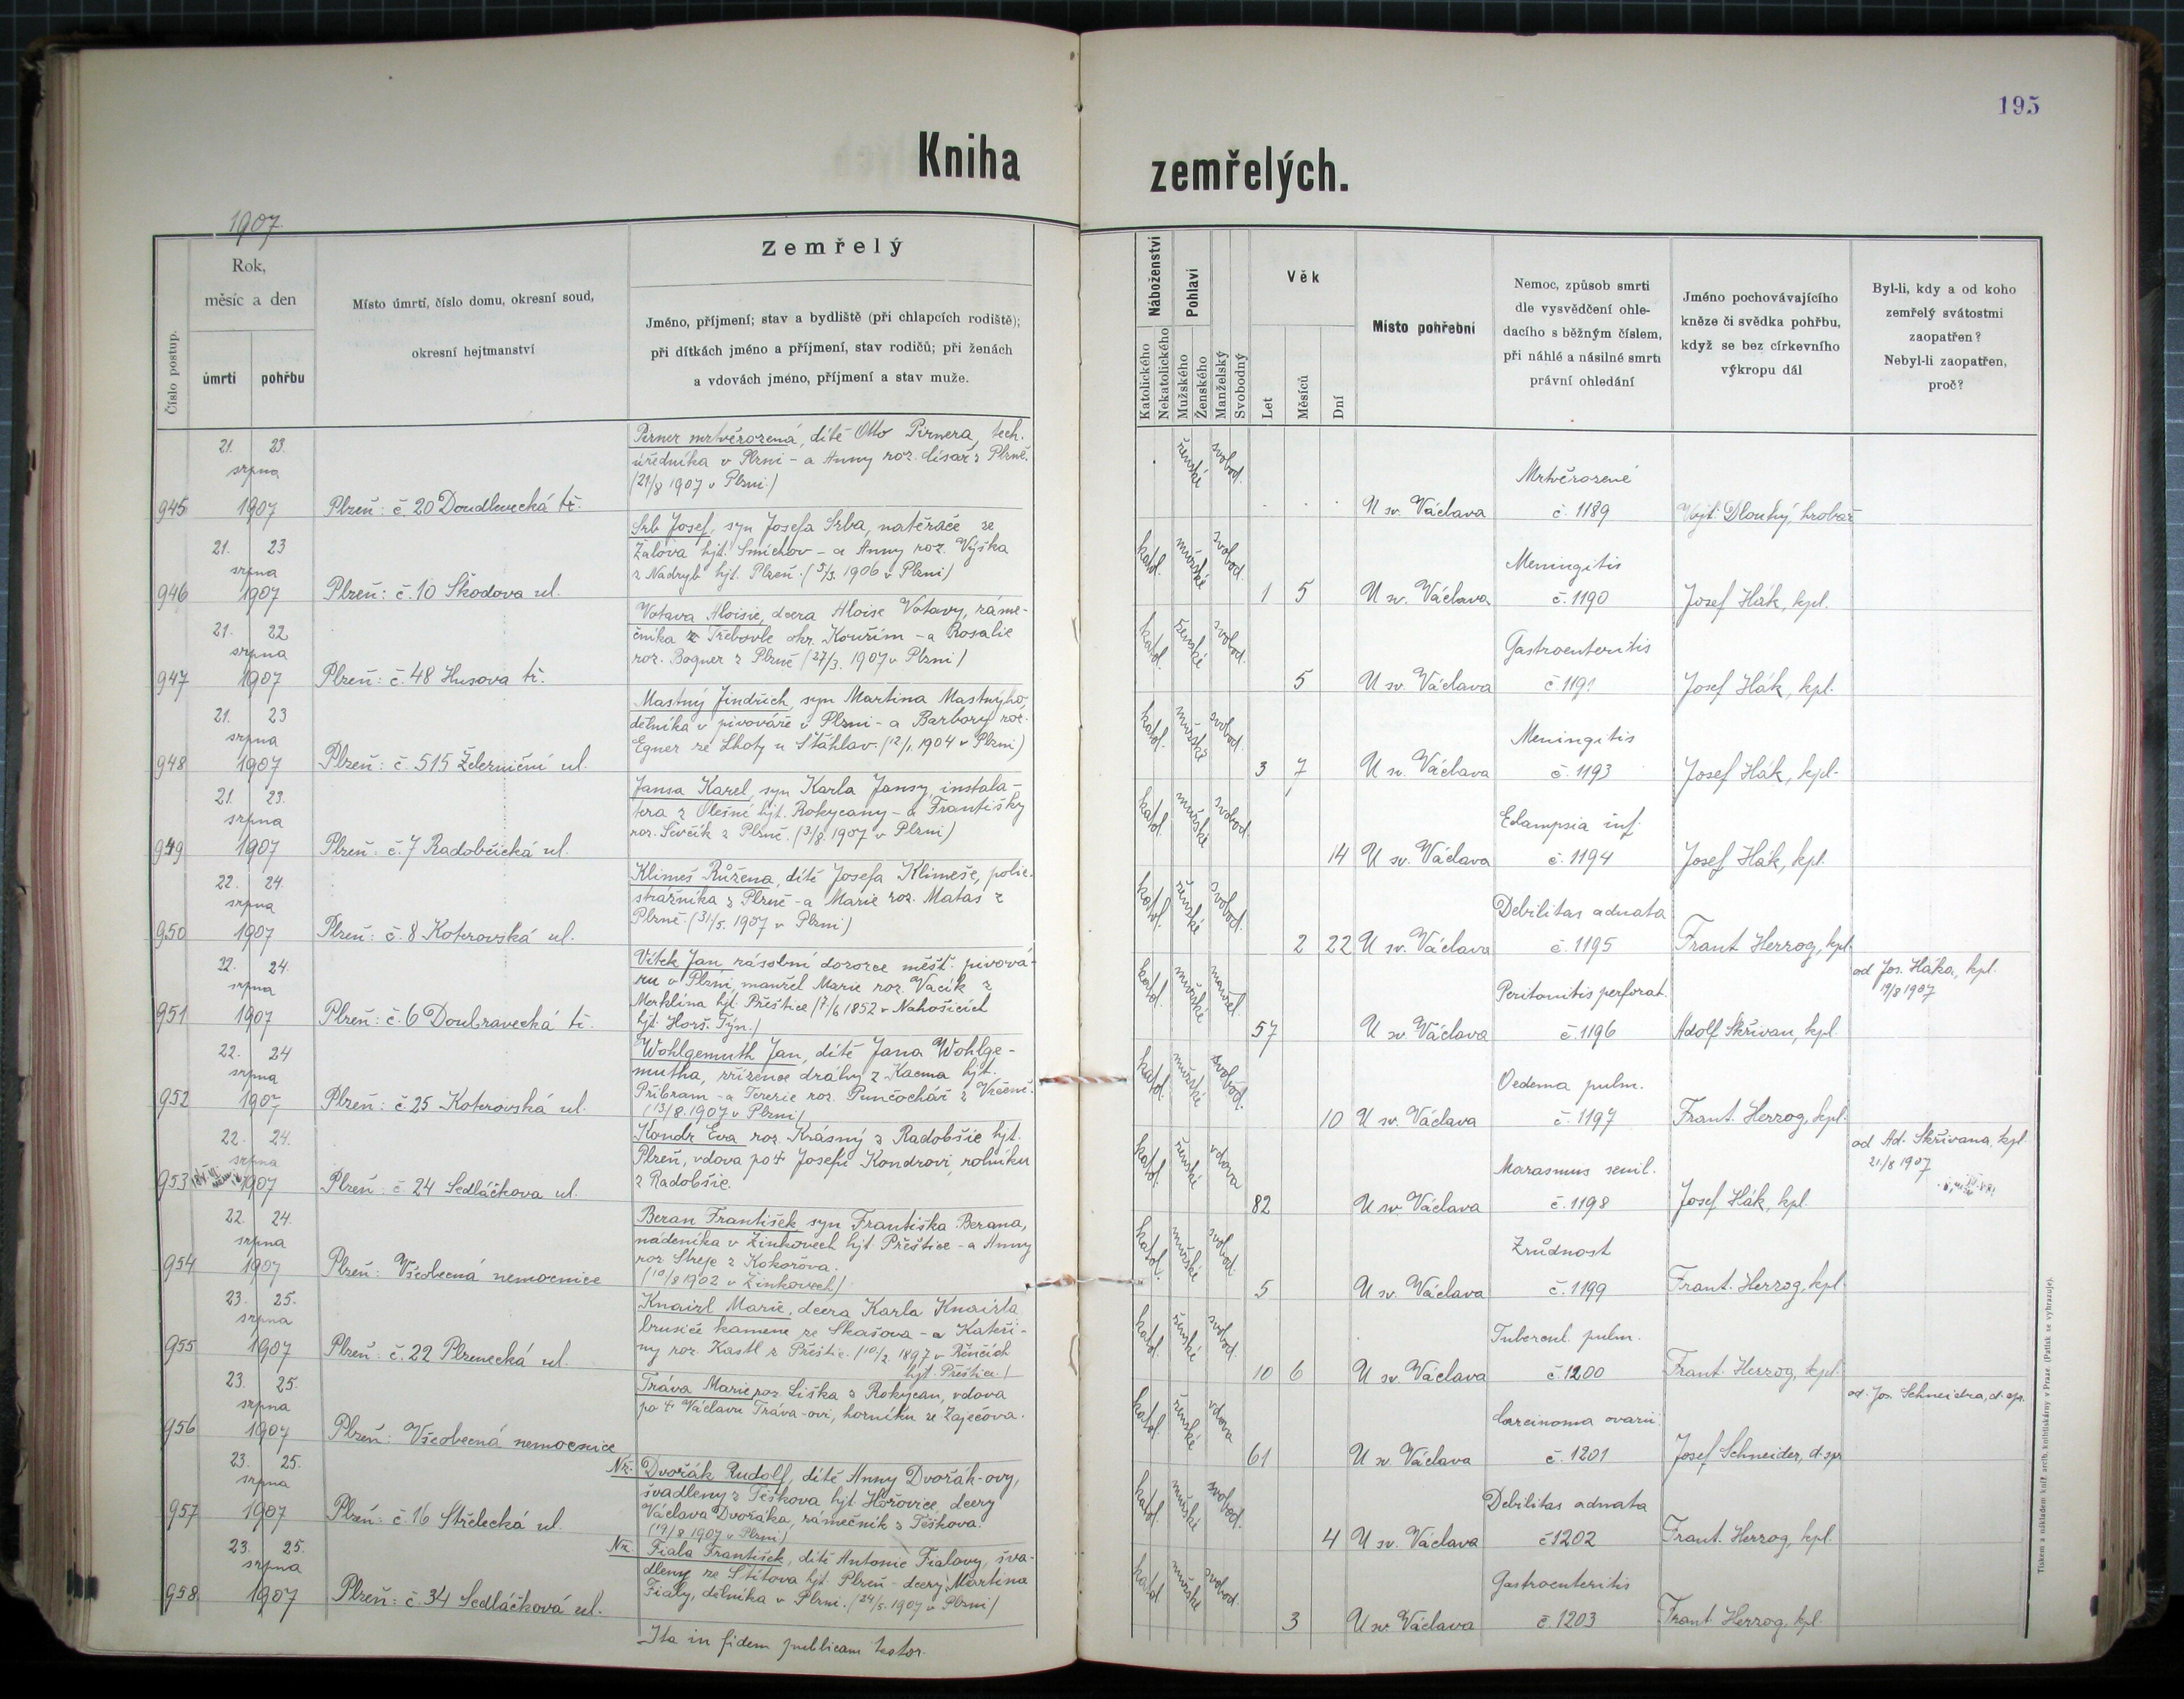 195
Kniha zemřelých.
1907.
Číslo postup.
Rok,
měsíc a den
úmrtí
pohřbu
Místo úmrtí, číslo domu, okresní soud,
okresní hejtmanství
Zemřelý
Jméno, příjmení; stav a bydliště (při chlapcích rodiště);
při dítkách jméno a příjmení, stav rodičů; při ženách
a vdovách jméno, příjmení a stav muže.
Náboženství
Katolického
Nekatolického
Pohlaví
Mužského
Ženského
Manželský
Svobodný
Věk
Let
Měsíců
Dní
Místo pohřební
Nemoc, způsob smrti
dle vysvědčení ohle-
dacího s běžným číslem,
při náhlé a násilné smrti
právní ohledání
Jméno pochovávajícího
kněze či svědka pohřbu,
když se bez církevního
výkropu dál
Byl-li, kdy a od koho
zemřelý svátostmi
zaopatřen?
Nebyl-li zaopatřen,
proč?
945
21. 23.
srpna
1907
Plzeň: č. 20 Doudlevecká tř.
Perner mrtvěrozená, dítě Otto Pernera, tech.
úředníka v Plzni - a Anny roz. Císař z Plzně.
(21/8 1907 v Plzni)
ženské
svobod.
U sv. Václava
Mrtvěrozené
č. 1189
Vojt. Dlouhý, hrobař
946
21. 23
srpna
1907
Plzeň: č. 10 Škodova ul.
Srb Josef, syn Josefa Srba, natěrače ze
Žalova hjt. Smíchov - a Anny roz. Výška
z Nadryb hjt. Plzeň. (3/3. 1906 v Plzni)
katol.
mužské
svobod.
1 5
U sv. Václava
Meningitis
č. 1190
Josef Hák, kpl.
947
21. 22
srpna
1907
Plzeň: č. 48 Husova tř.
Votava Aloisie, dcera Aloise Votavy, záme-
čníka z Třebovle okr. Kouřim - a Rosalie
roz. Bogner z Plzně (27/3. 1907 v Plzni)
katol.
ženské
svobod.
5
U sv. Václava
Gastroenteritis
č. 1191
Josef Hák, kpl.
948
21. 23
srpna
1907
Plzeň: č. 515 Železniční ul.
Mastný Jindřich, syn Martina Mastnýho,
dělníka v pivováře v Plzni - a Barbory roz.
Egner ze Lhoty u Šťáhlav. (12/1. 1904 v Plzni)
katol.
mužské
svobod.
3 7
U sv. Václava
Meningitis
č. 1193
Josef Hák, kpl.
949
21. 23.
srpna
1907
Plzeň: č. 7 Radobčická ul.
Jansa Karel, syn Karla Jansy, instala-
tera z Olešné hjt. Rokycany - a Františky
roz. Ševčík z Plzně. (3/8. 1907 v Plzni)
katol.
mužské
svobod.
14
U sv. Václava
Eclampsia inf.
č. 1194
Josef Hák, kpl.
950
22. 24.
srpna
1907
Plzeň: č. 8 Koterovská ul.
Klimeš Růžena, dítě Josefa Klimeše, polic.
strážníka z Plzně - a Marie roz. Matas z
Plzně. (31/5. 1907 v Plzni)
katol.
ženské
svobod.
2 22
U sv. Václava
Debilitas adnata
č. 1195
Frant. Herzog, kpl.
951
22. 24.
srpna
1907
Plzeň: č. 6 Doubravecká tř.
Vítek Jan, zásobní dozorce měšť. pivová-
ru v Plzni, manžel Marie roz. Vacík z
Merklína hjt. Přeštice (7/6 1852 v Nahošicích
hjt. Horš. Týn.)
katol.
mužské
manžel.
57
U sv. Václava
Peritonitis perforat.
č. 1196
Adolf Skřivan, kpl.
od Jos. Háka, kpl.
19/8 1907
952
22. 24
srpna
1907
Plzeň: č. 25 Koterovská ul.
Wohlgemuth Jan, dítě Jana Wohlge-
mutha, zřízence dráhy z Kacma hjt.
Příbram - a Terezie roz. Punčochář
(13/8. 1907 v Plzni)
katol.
mužské
svobod.
10
U sv. Václava
Oedema pulm.
č. 1197
Frant. Herzog, kpl.
953
22. 24.
srpna
1907
Plzeň: č. 24 Sedláčkova ul.
Kondr Eva roz. Krásný z Radobčic hjt.
Plzeň, vdova po † Josefu Kondrovi rolníku
z Radobčic.
katol.
ženské
vdova
82
U sv. Václava
Marasmus senil.
č. 1198
Josef Hák, kpl.
od Ad. Skřivana, kpl.
21/8 1907
954
22. 24.
srpna
1907
Plzeň: Všeobecná nemocnice
Beran František syn Františka Berana,
nádeníka v Žinkovech hjt. Přeštice - a Anny
roz. Strejc z Kokořova.
(10/8 1902 v Žinkovech)
katol.
mužské
svobod.
5
U sv. Václava
Zrůdnost
č. 1199
Frant. Herzog, kpl.
955
23. 25.
srpna
1907
Plzeň: č. 22 Plzenecká ul.
Knaizl Marie, dcera Karla Knaizla
brusiče kamene ze Skašova - a Kateři-
ny roz. Kastl z Přeštic. (10/2. 1897 v Řenčích
hjt. Přeštice)
katol.
ženské
svobod.
10 6
U sv. Václava
Tubercul. pulm.
č. 1200
Frant. Herzog, kpl.
956
23. 25.
srpna
1907
Plzeň: Všeobecná nemocnice
Tráva Marie roz. Liška z Rokycan, vdova
po † Václavu Tráva-ovi, horníku ze Zaječova.
katol.
ženské
vdova
61
U sv. Václava
Carcinoma ovarii.
č. 1201
Josef Schneider, d. sp.
od Jos. Schneidra, d. sp.
957
23. 25.
srpna
1907
Plzeň: č. 16 Střelecká ul.
Nz. Dvořák Rudolf, dítě Anny Dvořák-ovy,
švadleny z Těškova hjt. Hořovice, dcery
Václava Dvořáka, zámečník z Těškova.
(19/8 1907 v Plzni)
katol.
mužské
svobod.
4
U sv. Václava
Debilitas adnata
č. 1202
Frant. Herzog, kpl.
958
23. 25.
srpna
1907
Plzeň: č. 34 Sedláčková ul.
Nz. Fiala František, dítě Antonie Fialovy, šva-
dleny ze Štítova hjt. Plzeň - dcery Martina
Fialy, dělníka v Plzni. (24/5. 1907 v Plzni)
katol.
mužské
svobod.
3
U sv. Václava
Gastroenteritis
č. 1203
Frant. Herzog, kpl.
Ita in fidem publicam testor.
Tiskem a nákladem kníž. arcib. knihtiskárny v Praze. (Patisk se vyhrazuje).